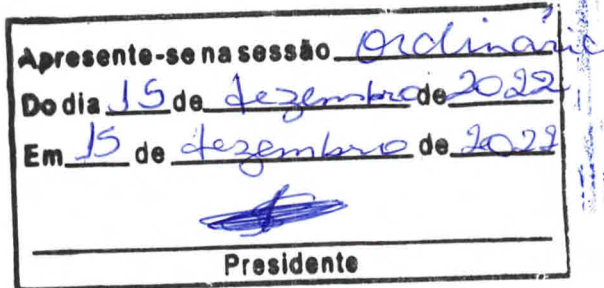 Apresente-se na sessão Ordinária
Do dia 15 de dezembro de 2022
Em 15 de dezembro de 2022
Presidente